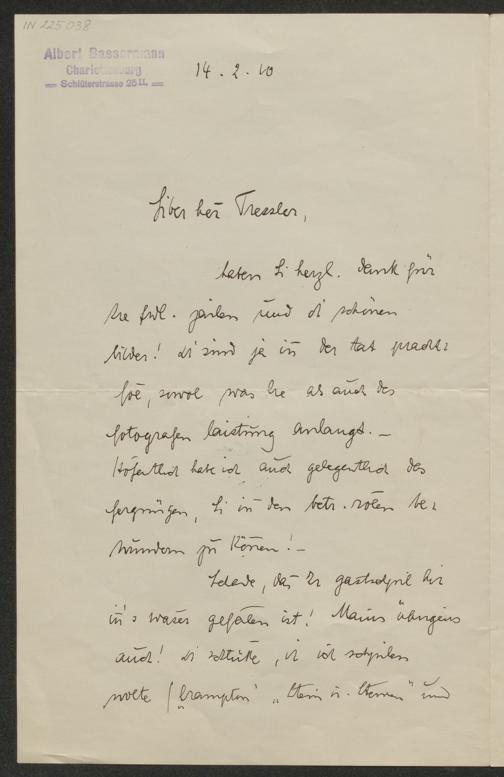 IN 225038
Albert Bassermann
Charlottenburg
Schlüterstrasse 25 II.
14 . 2 . 10
Liber her Tressler,
haben Si herzl. dank für
Ire frdl. zeilen und di schönen
bilder! Di sind ja in der tat pracht-
fol, sowol was Ire als auch des
fotografen laistung anlangt. —
Hofentlich habe ich auch gelegentlich des
fergnügen, Si in den betr. rolen be-
wundern zu könen! —
Schade, das Ir gastschpil hir
in's waser gefalen ist! Mains übrigens
auch! Di schtüke, di ich schpilen
wolte („Crampton" „Stein u. Steinen" und